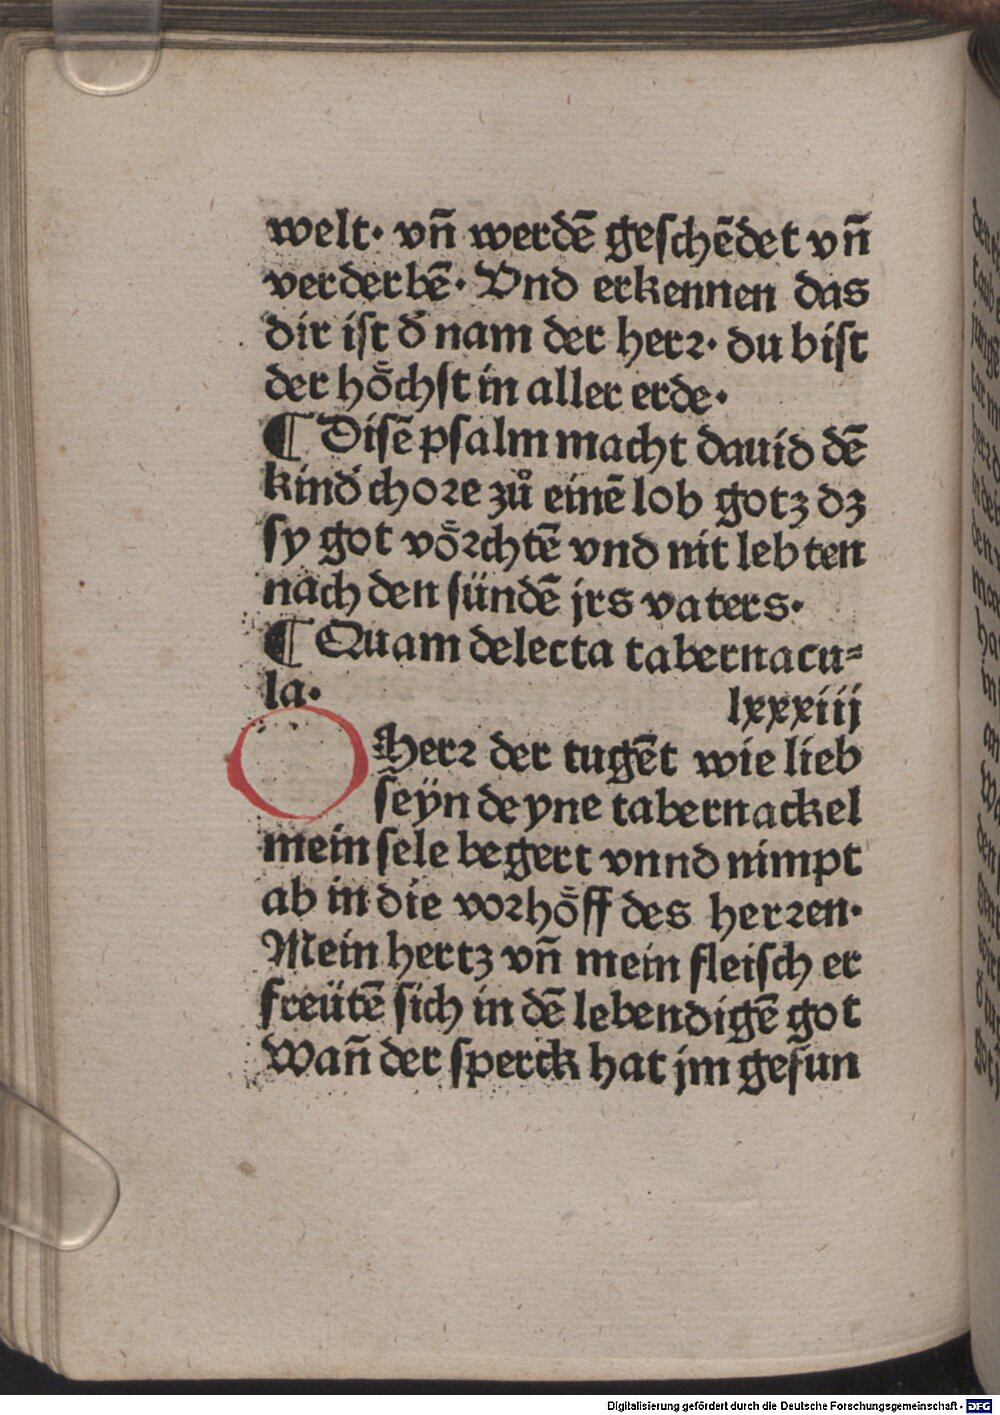 welt· vñ werdē geſchēdet vñ
verderbē· Vnd erkennen das
dir iſt d̄ nam der herꝛ· du biſt
der hoͤchſt in aller erde·
¶ Diſē pſalm macht dauid dē
kind̓ choꝛe zů einē lob gotz dz
ſy got voͤꝛchtē vnd nit lebten
nach den ſündē jrs vaters·
¶ Quam delecta tabernacu⸗
la· lxxxiij
O Herꝛ der tugēt wie lieb
ſeÿn deyne tabernackel
mein ſele begert vnnd nimpt
ab in die voꝛhoͤff des herꝛen·
Mein hertz vñ mein fleiſch er
freütē ſich in dē lebendigē got
Wañ der ſperck hat jm gefun
Digitalisierung gefördert durch die Deutsche Forschungsgemeinschaft - DFG